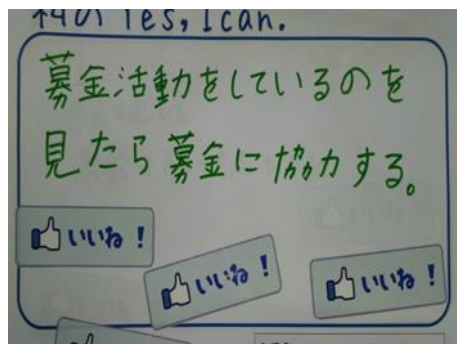 私のYes, I can.
募金活動をしているのを
見たら募金に協力する。
いいね!
いいね!
いいね!